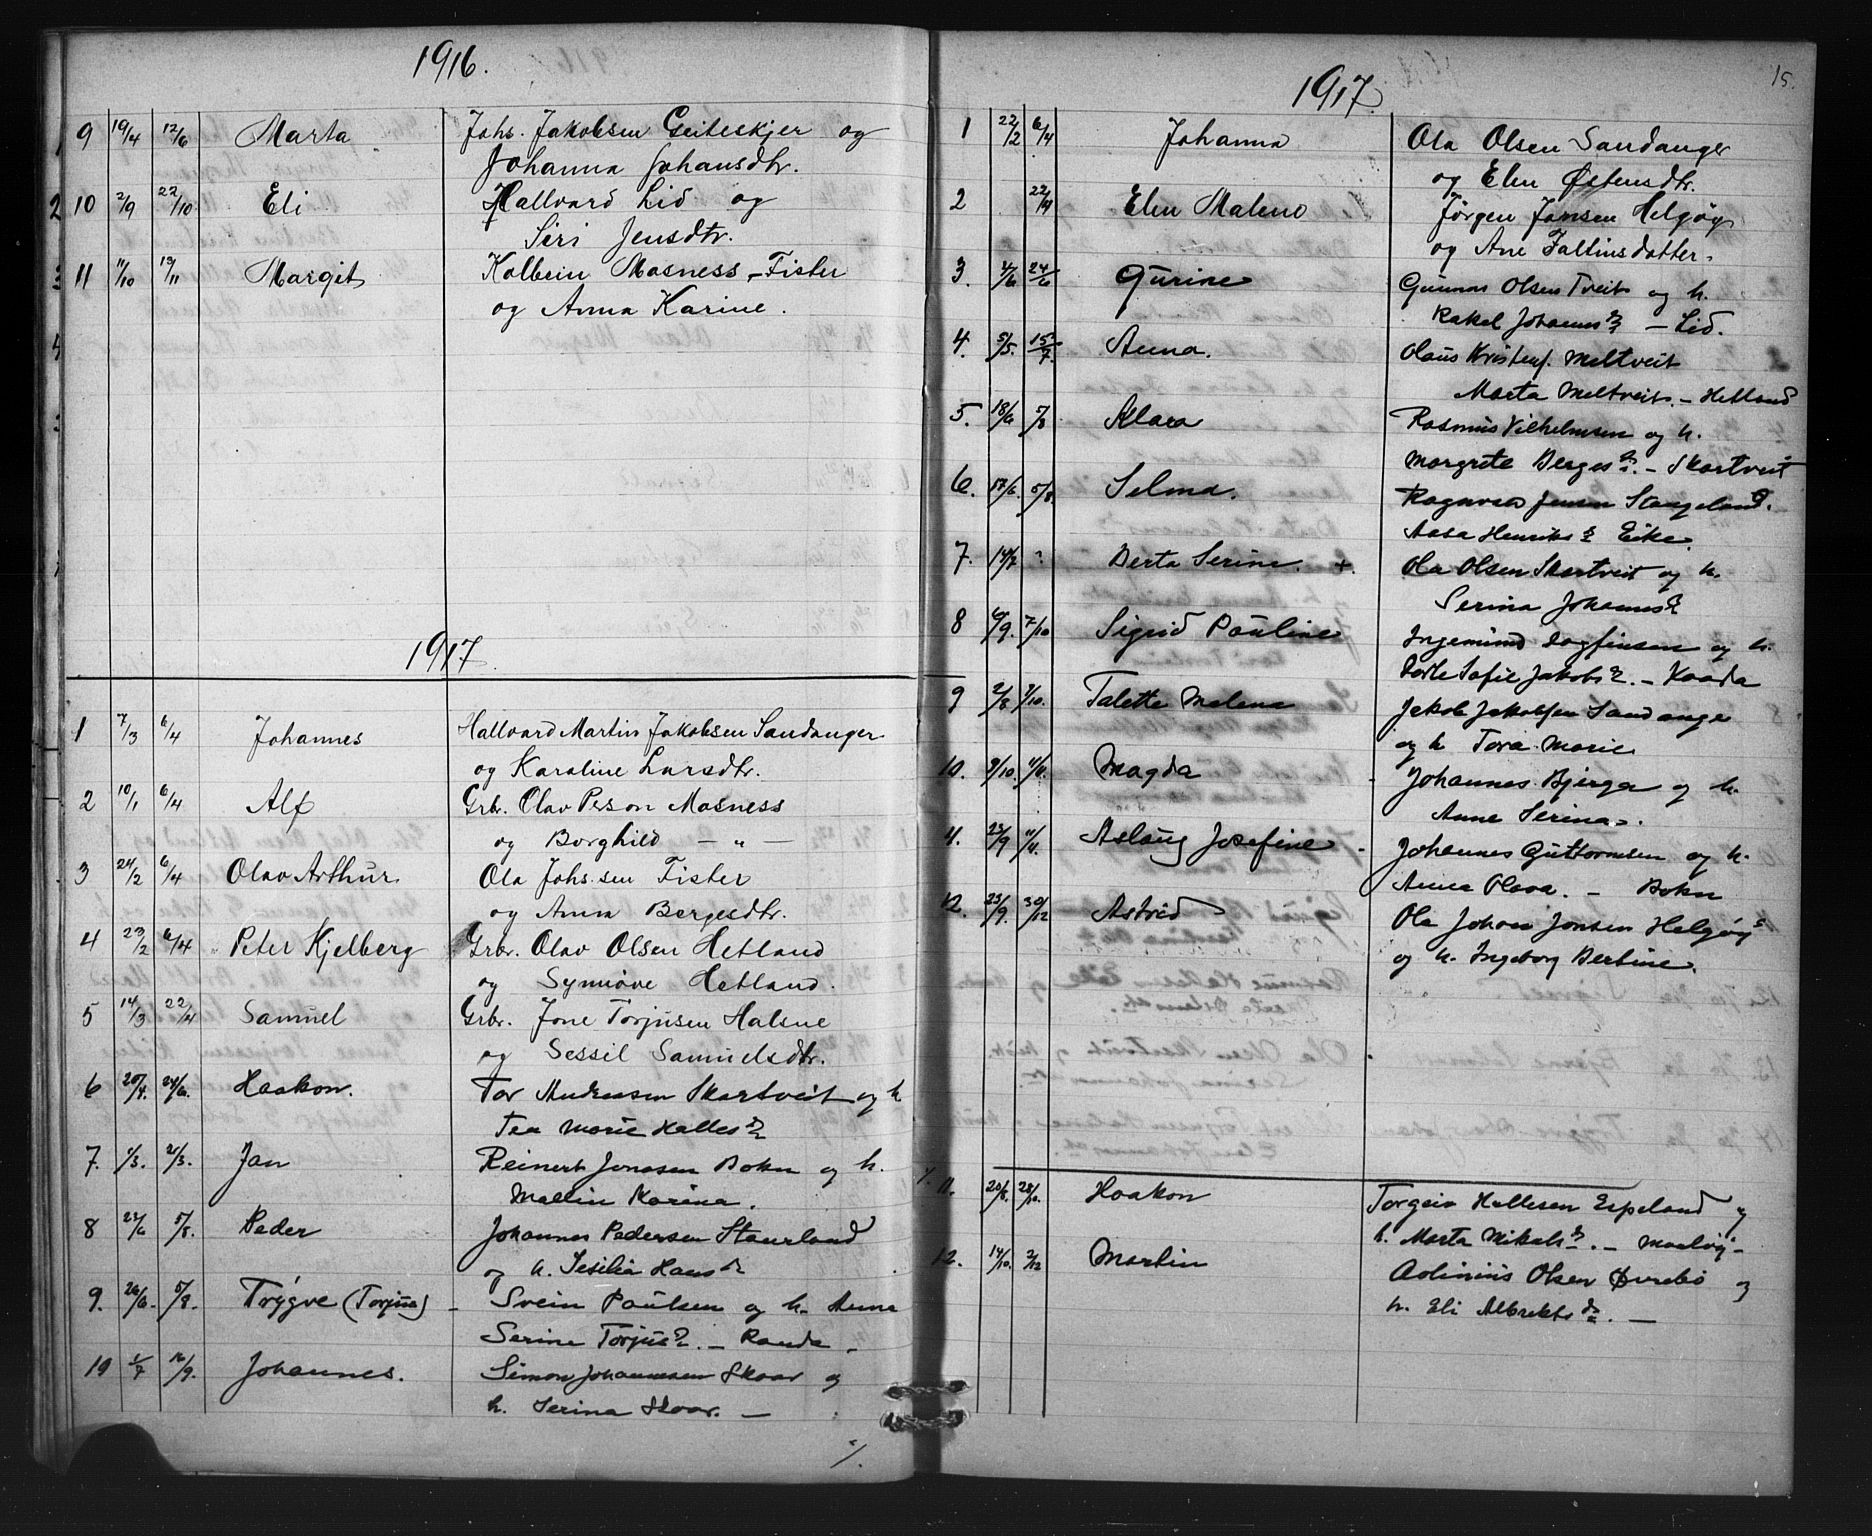 1916.
9 19/4 12/6 Marta Johs. Jakobsen Geiteskjer og
Johanna Johansdtr.
10 2/9 22/10 Eli Hallvard Lid og
Siri Jensdtr.
11 11/10 19/11 Margit Kolbein Mosness - Fister
og Anna Karine.
1917.
1 7/3 6/4 Johannes Hallvard Martin Jakobsen Sandanger
og Karoline Larsdtr.
2 10/1 6/4 Alf Grb. Olav Person Mosness
og Borghild — „ —
3 24/2 6/4 Olav Arthur Ola Johs.sen Fister
og Anna Bergesdtr.
4 23/2 6/4 Peter Kjelberg Grb. Olav Olsen Hetland
og Synnöve Hetland.
5 14/3 22/4 Samuel Grb. Jone Torjusen Halsne
og Sessil Samuelsdtr.
6 20/4. 24/6. Haakon. Tor Andreasen Skartveit og h
Tea Marie Halles d/r
7. 1/3. 2/3. Jan Reinert Jonasen Bokn og h.
Mallin Karina.
8 22/6 5/8. Peder Johannes Pedersen Staurland
og h. Sesilia Hans dr
9. 26/6. 5/8. Trygve (Torjus) - Svein Paulsen og h. Anna
Serine Torjus dr. - Randa.
10 1/7 16/9. Johannes. Simon Johannesen Skaar og
h. Serina Skaar. —
15.
1917.
1 22/2 6/4 Johanna Ola Olsen Sandanger
og Elen Østensdtr.
2 22/4 Elen Malene Jörgen Jansen Helgöy
og Ane Faltinsdatter.
3. 4/6 24/6 Gurine Gunnar Olsen Tveit og h.
Rakel Johannes dr — Lid.
4. 5/5. 15/7. Anna. Olaus Kristens. Meltveit
Marta Meltveit. - Hetland
5. 18/6 5/8 Klara Rasmus Vilhelmsen og h.
Margrete Berges dr. - Skartveit
6. 17/6. 5/8. Selma. Ragnvald Jensen Stangeland.
Aasa Henriks dr Eike.
7. 14/7 ? Berta Serine. +. Ola Olsen Skartveit og h.
Serina Johannes dr
8 6/9. 7/10 Sigrid Pauline Ingemund Dagfinsen og h.
Dorte Sofie Jakobs dr. - Kaada
9 2/8 7/10. Talette Malene Jakob Jakobsen Sandange
og h Tora Marie
10. 9/10. 11/11. Magda - Johannes Bjerga og h.
Anne Serina -.
11. 25/9 11/11. Aslaug Josefine - Johannes Guttormsen og h.
Anna Olava. - Bokn
12. 23/9. 30/12 Astrid Ole Johan Jonsen Helgöy
og h. Ingeborg Bertine.
11. 20/8. 28/10. Haakon Torgeir Hallesen Espeland og
h. Marta Mikals dr. -
12. 14/10. 2/12 Martin Adinius Olsen Övrebö og
h. Eli Albrekts dr. —